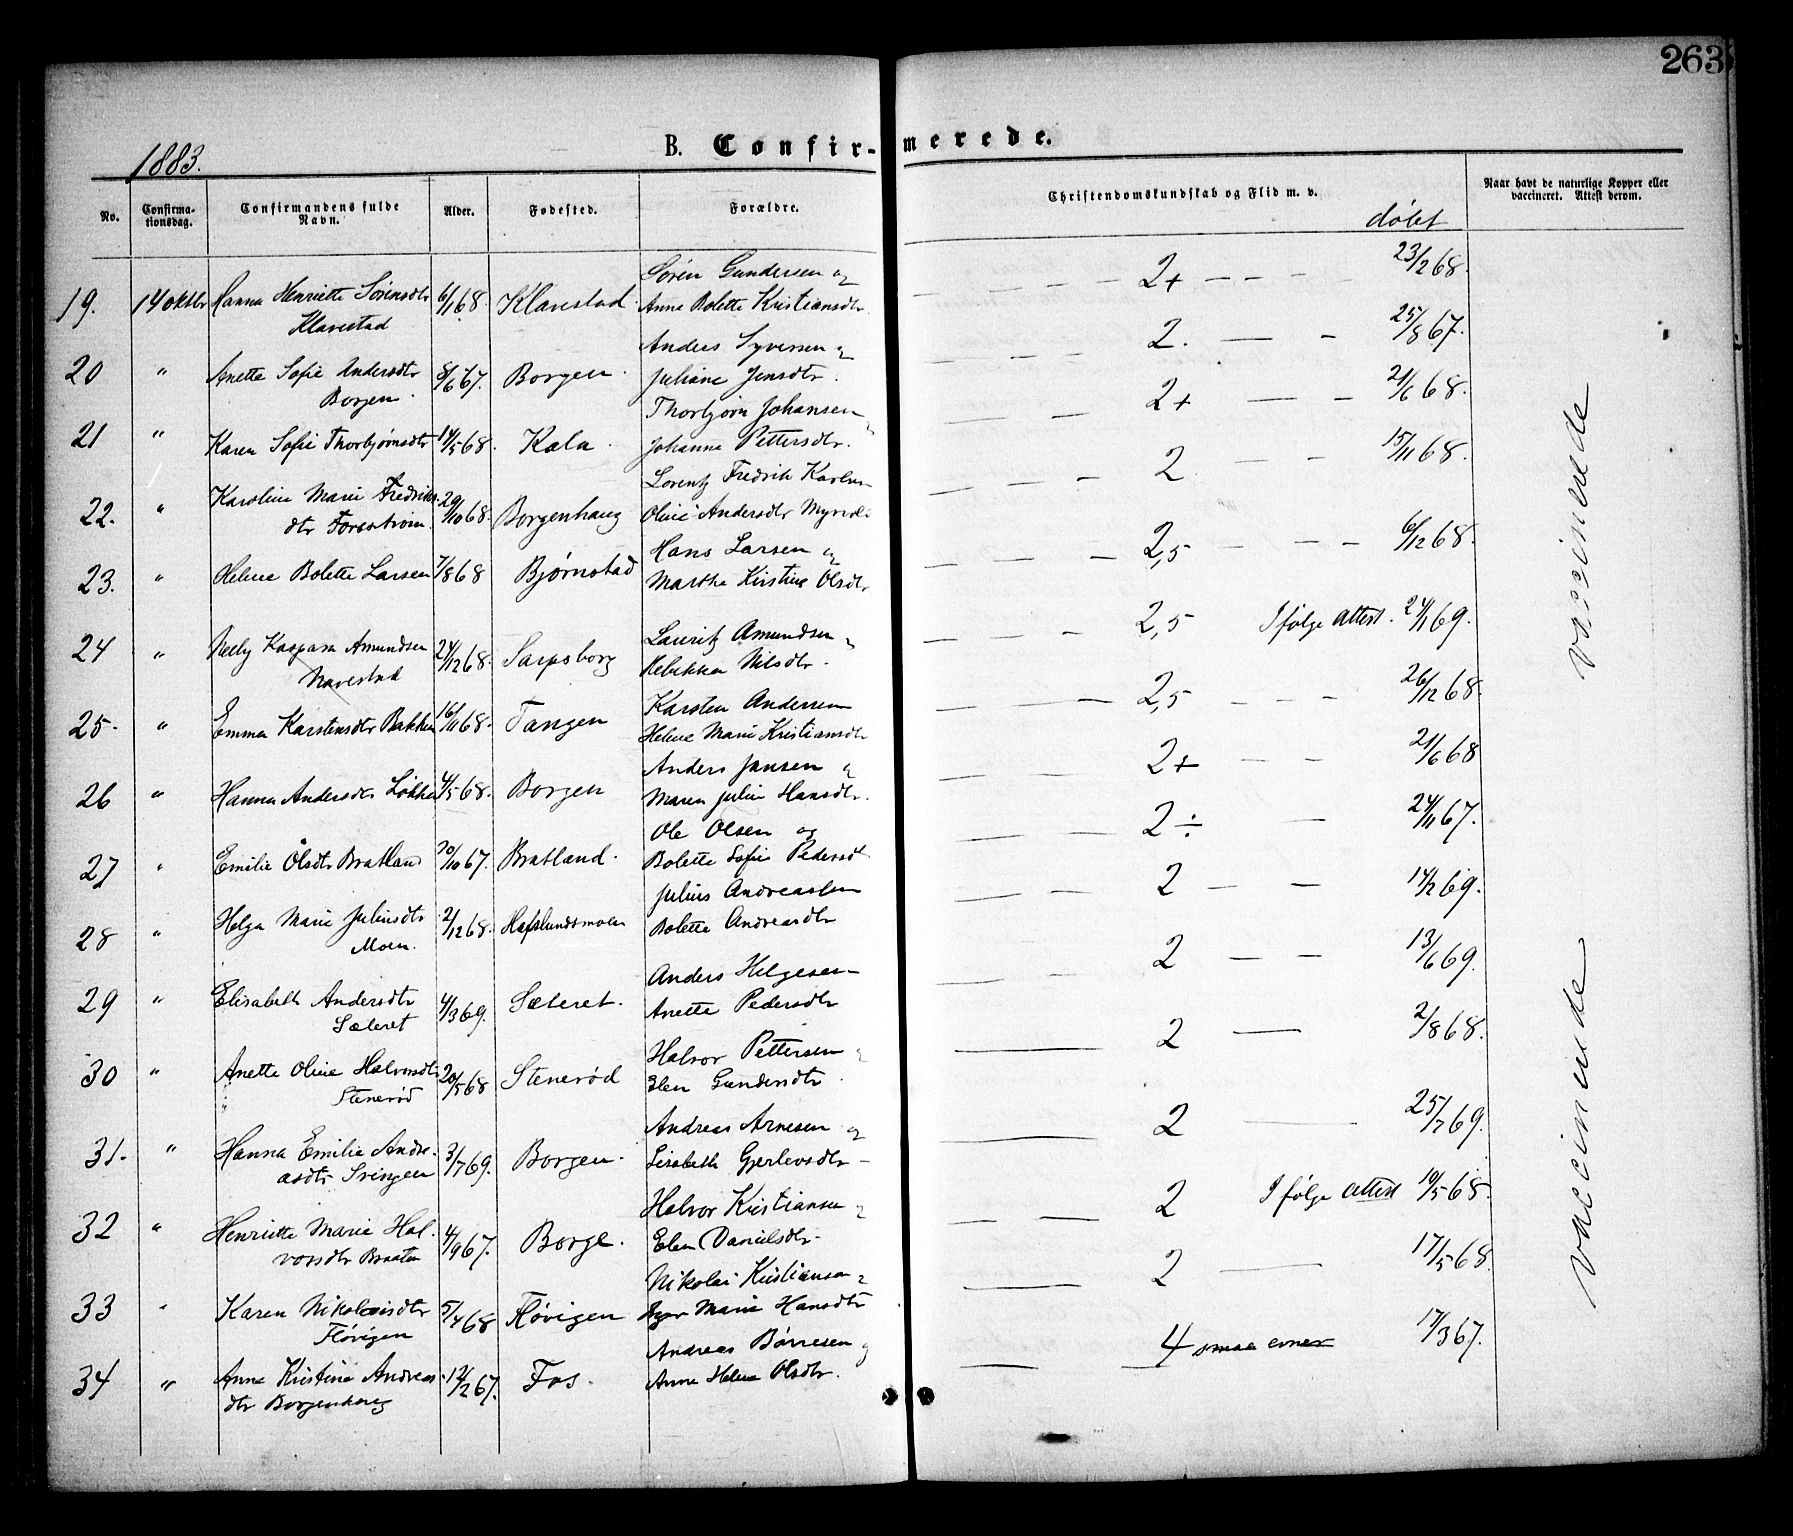 263
1883.
B. Confir- merede.
No. Confirma-tionsdag. Confirmandens fulde Navn. Alder. Fødested. Forældre. Christendomskundskab og Flid m. v. Naar havt de naturlige Kopper eller vaccineret. Attest derom.
døbt
Søren Gundersen og
19. 14 oktbr Hanna Henriette Sørensdtr 6/1 68. Klavestad. Anne Bolette Kristiansdtr. 2+ 23/2 68.
Klavestad
Anders Syversen og
20 " Anette Sofie Andersdtr 8/6 67. Borgen. Juliane Jensdtr. 2. 25/8 67.
Borgen.
Thorbjørn Johansen
21 " Karen Sofie Thorbjørnsdtr 14/5 68. Kala. Johanne Pettersdtr. 2+ 21/6 68.
Lorentz Fredrik Karlsen
22. " Karoline Marie Fredriks- 29/10 68. Borgenhaug Oline Andersdtr 2 15/11 68.
dtr
Hans Larsen og
23. " Helene Bolette Larsen 7/8 68 Bjørnstad Marthe Kirstine Olsdtr 2,5 6/12 68.
Lauritz Amundsen
24 " Nelly Kaspara Amundsen 24/12 68. Sarpsborg Rebekka Nilsdtr. 2,5 I følge attest. 24/1 69.
Navestad
Karsten Andersen
25. " Emma Karstensdtr Bakken 16/11 68. Tangen Helene Marie Kristiansdtr 2,5 26/12 68.
Anders Jansen og
26 " Hanna Andersdtr Løkke 4/5 68. Borgen Maren Julie Hansdtr. 2+ 21/6 68
Ole Olsen og
27 " Emilie Olsdtr Bratland 20/10 67. Bratland. Bolette Sofie Pedersdt 2÷ 24/11 67.
Julius Andreassen
28 " Helga Marie Juliusdtr 2/12 68. Hafslundsmoen Bolette Andreasdtr 2 14/2 69.
Moen.
Anders Helgesen
29 " Elisabeth Andersdtr 4/3 69. Sæteret. Anette Pedersdtr 2 13/6 69.
Sæteret
Halvor Pettersen
30 " Anette Oline Halvorsdtr 20/5 68 Stenerød Elen Gundersdtr. 2 2/8 68.
" Stenerød
Andreas Arnesen og
31. " Hanna Emilie Andre- 3/7 69. Borgen. Lisabeth Gjerlovsdtr 2 25/7 69.
asdtr Svingen
Halvor Kristiansen
32 " Henriette Marie Hal- 4/9 67. Borge. Elen Danielsdtr. 2 I følge attest 10/5 68.
vorsdtr Braaten
Nikolai Kristiansen
33 " Karen Nikolaisdtr 5/4 68 Fløvigen Marie Hansdtr 2 17/5 68.
Fløvigen
Andreas Børresen og
34 " Anne Kristine Andreas- 12/2 67. Fos. Anne Helene Olsdtr. 4 smaa evner 17/3 67.
dtr Borgenhaug
vaccinerede
vaccinerede